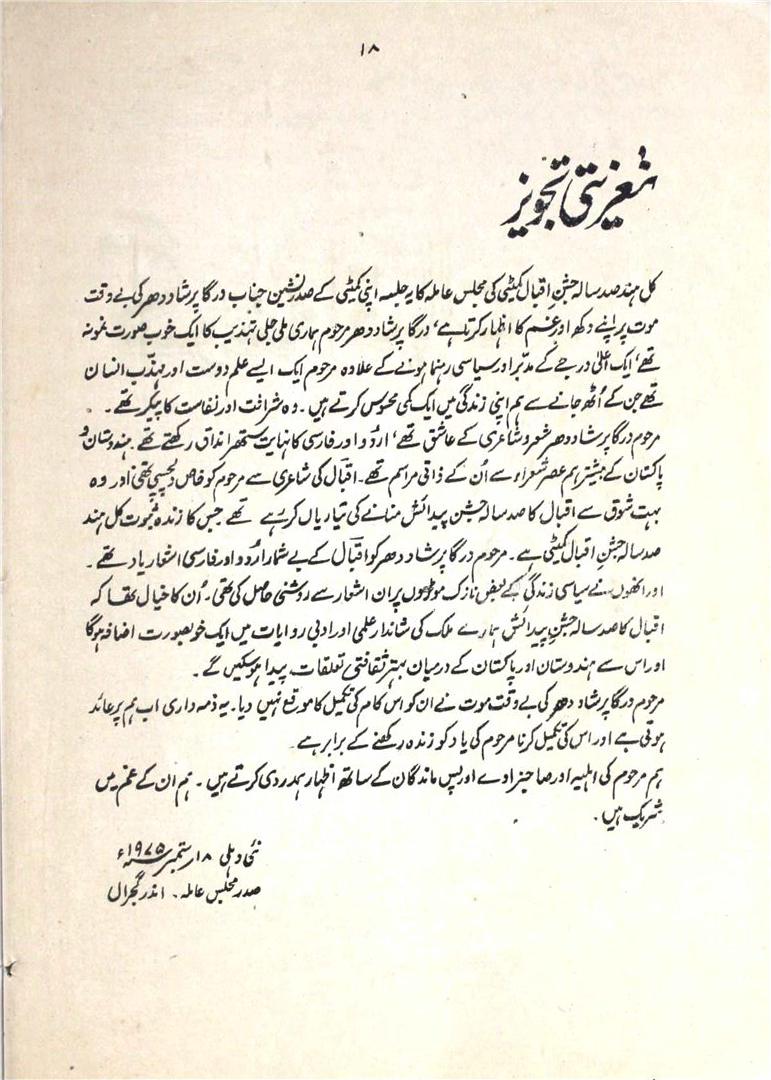 ۱۸
تعزیتی تجویز
کل ہند صد سالہ جشنِ اقبال کمیٹی کی مجلس عاملہ کا یہ جلسہ اپنی کمیٹی کے صدر نشین جناب درگا پرشاد دھر کی بے وقت
موت پر اپنے دکھ اور غم کا اظہار کرتا ہے، درگا پرشاد دھر مرحوم ہماری ملی جلی تہذیب کا ایک خوب صورت نمونہ
تھے، ایک اعلیٰ درجے کے مدبّر اور سیاسی رہنما ہونے کے علاوہ مرحوم ایک ایسے علم دوست اور مہذّب انسان
تھے جن کے اُٹھ جانے سے ہم اپنی زندگی میں ایک کمی محسوس کرتے ہیں۔ وہ شرافت اور نفاست کا پیکر تھے۔
مرحوم درگا پرشاد دھر شعر و شاعری کے عاشق تھے، اردو اور فارسی کا نہایت ستھرا مذاق رکھتے تھے۔ ہندوستان و
پاکستان کے بیشتر ہم عصر شعراء سے اُن کے ذاتی مراسم تھے۔ اقبال کی شاعری سے مرحوم کو خاص دلچسپی تھی اور وہ
بہت شوق سے اقبال کا صد سالہ جشن پیدائش منانے کی تیاریاں کر رہے تھے جس کا زندہ ثبوت کل ہند
صد سالہ جشنِ اقبال کمیٹی ہے۔ مرحوم درگا پرشاد دھر کو اقبال کے بے شمار اردو اور فارسی اشعار یاد تھے۔
اور انھوں نے سیاسی زندگی کے بعض نازک موڑوں پر ان اشعار سے روشنی حاصل کی تھی۔ اُن کا خیال تھا کہ
اقبال کا صد سالہ جشنِ پیدائش ہمارے ملک کی شاندار علمی اور ادبی روایات میں ایک خوبصورت اضافہ ہوگا
اور اس سے ہندوستان اور پاکستان کے درمیان بہتر ثقافتی تعلقات پیدا ہو سکیں گے۔
مرحوم درگا پرشاد دھر کی بے وقت موت نے ان کو اس کام کی تکمیل کا موقع نہیں دیا۔ یہ ذمہ داری اب ہم پر عائد
ہوتی ہے اور اس کی تکمیل کرنا مرحوم کی یاد کو زندہ رکھنے کے برابر ہے۔
ہم مرحوم کی اہلیہ اور صاحبزادے اور پس ماندگان کے ساتھ اظہار ہمدردی کرتے ہیں۔ ہم ان کے غم میں
شریک ہیں۔
نئی دہلی ۱۸ ستمبر ۱۹۷۵ء
صدر مجلس عاملہ۔ اندر گجرال